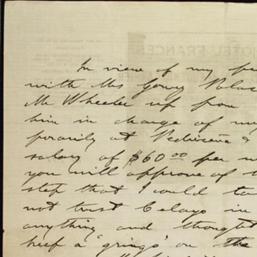 In view of my
with Mr
Mr Wheeler up from
him in charge of my
porarily at
salary of $60.00 per
you will approve of
step that I could
not trust Celayo in
anything and thought
keep a "gringo" on the